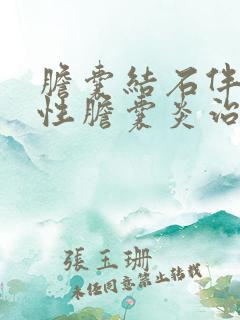 膽囊結石伴
性膽囊炎治
張玉珊
未經同意禁止轉載